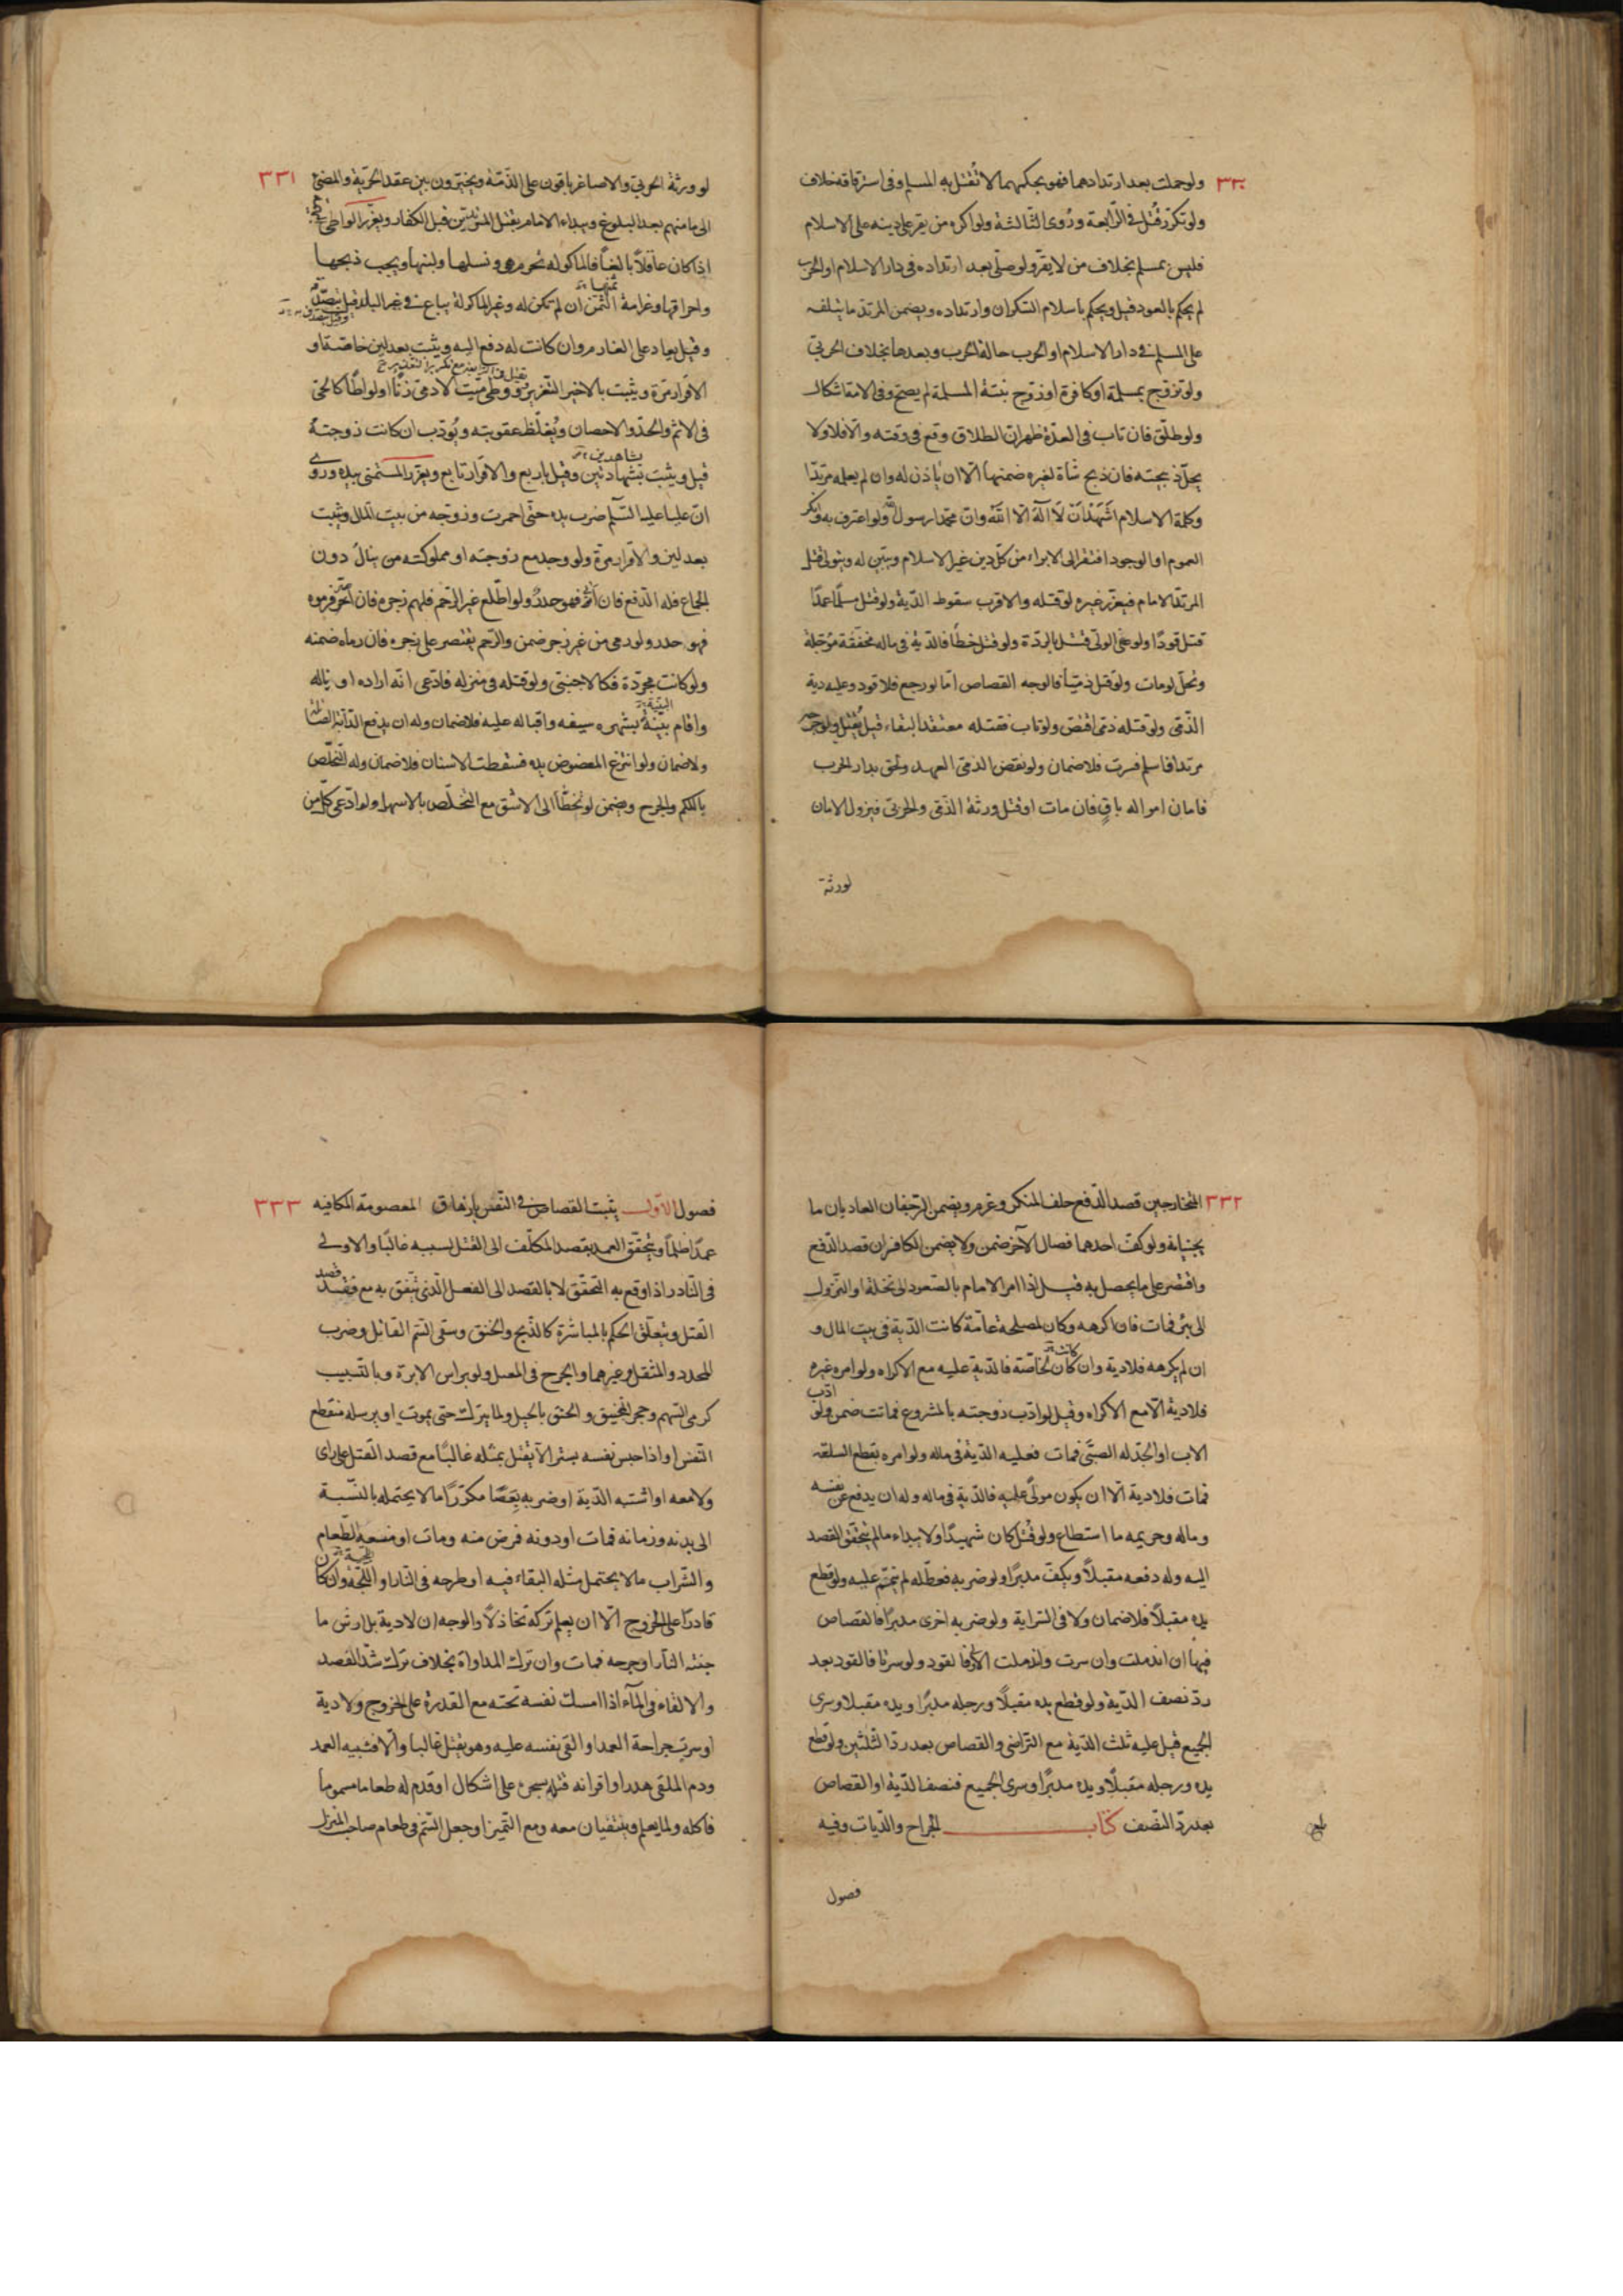 ٣٣٠
ولو حملت بعد ارتدادهما فهو بحكمهما لا تقتل به المسلم وفى استرقاقه خلاف
ولو تكرّر قُتل فى الرّابعة ورُوى الثّالثة ولو اكره من يقر على دينه على الاسلام
فليس بمسلم بخلاف من لا يقرّ ولو صلّى بعد ارتداده فى دار الاسلام او الحرب
لم يحكم بالعود قيل ويحكم باسلام السّكران وارتداده ويضمن المرتد ما يتلفه
على المسلم فى دار الاسلام او الحرب حالة الحرب وبعدها بخلاف الحربىّ
ولو تزوّج بمسلمة او كافرة او زوّج بنته المسلمة لم يصحّ وفى الامة اشكال
ولو طلّق فان تاب فى العدّة ظهر انّ الطلاق وقع فى وقته والّا فلا ولا
يحلّ ذبيحته فان ذبح شاة لغيره ضمنها الّا ان ياذن له وان لم يعلمه مرتدًا
وكلمة الاسلام اشهد ان لا اله الا الله وانّ محمّدا رسول الله ولو اعترف به وانكر
العموم او الوجود افتقر الى الابراء من كلّ دين غير الاسلام ويبيّن له ويتولّى قتل
المرتدّ الامام فيعزّر غيره لو قتله والاقرب سقوط الدّية ولو قتل مسلمًا عمدًا
قتل قودًا ولو عفى الولىّ قتل بالردّة ولو قتل خطأً فالدّية فى ماله مخفّفة مؤجّلة
وتحلّ لو مات ولو قتل ذمّيًا فالوجه القصاص امّا لو رجع فلا قود وعليه دية
الذّمّى ولو قتله ذمّى اقتصّ ولو تاب فقتله معتقدًا لبقاء قيل يُقتل ولو جرح
مرتدا فاسلم فسرت فلا ضمان ولو نقض الذمّى العهد ولحق بدار الحرب
فامان امواله باقٍ فان مات او قتل ورثة الذّمّى والحربىّ فيزول الامان
لورثة
٣٣١
لو ورثة الحربىّ والاصاغر باقون على الذّمّة ويخيّرون بين عقد الجزية والمضىّ
الى مامنهم بعد البلوغ ويبداء الامام بقتل المرتدّين قبل الكفّار ويعزّر الواطى
اذا كان عاقلًا بالغًا فالماكولة تُحرم هى ونسلها ولبنها ويجب ذبحها
واحراقها وغرامة الثّمن ان لم تكن له وغير الماكولة يباع فى غير البلد قيل يتصدّق
ثمنها
وقيل يعاد على الغارم وان كانت له دفع اليه ويثبت بعدلين خاصّة او
الاقرار مرّة ويثبت بالاخير التّعزير ووطى ميّت الادمى زنًا او لواطًا كالحىّ
فى الاثم والحدّ والاحصان ويُغلّظ عقوبته ويُؤدّب ان كانت زوجته
قيل ويثبت بشهادتين وقيل باربع والاقرار تابع ويعزّر المستمنى بيده وروى
بشاهدين
انّ عليا عليه السّلم ضرب يده حتّى احمرت وزوّجه من بيت المال ويثبت
بعدلين والاقرار مرّة ولو وجد مع زوجته او مملوكته من ينال دون
الجماع فله الدّفع فان اتى فهو هدر ولو اطّلع غير الرّحم فلهم زجره فان اصرّ فرموه
فهو هدر ولو رمى من غير زجر ضمن والرّحم يقتصر على زجره فان رماه ضمنه
ولو كانت مجرّدة فكالاجنبىّ ولو قتله فى منزله فادّعى انّه اراده او ماله
واقام بيّنة بشهره سيفه واقباله عليه فلا ضمان وله ان يدفع الدّابّة الصّائلة
البيّنة
ولا ضمان ولو انتزع المعضوض يده فسقطت الاسنان فلا ضمان وله التّخلّص
باللكم والجرح ويضمن لو تخطّا الى الاشقّ مع التّخلّص بالاسهل ولو ادّعى كلّ من
٣٣٢
المتجارحين قصد الدّفع حلف المنكر وغرم ويضمن الزّحفان العاديان ما
يجنيانه ولو كفّ احدهما فصال الآخر ضمن ولا يضمن الكافّ ان قصد الدّفع
واقتصر على ما يحصل به قيل اذا امر الامام بالصّعود الى نخلة او النّزول
الى بئر فمات فان اكرهه وكان لمصلحة عامّة كانت الدّية فى بيت المال و
ان لم يكرهه فلا دية وان كان لخاصّة فالدّية عليه مع الاكراه ولو امره غيره
كانت
فلا دية الّا مع الاكراه وقيل لو ادّب زوجته بالمشروع فماتت ضمن ولو
ادّب
الاب او الجدّ له الصبىّ فمات فعليه الدّية فى ماله ولو امره بقطع السلعة
فمات فلا دية الّا ان يكون مولًّى عليه فالدّية فى ماله وله ان يدفع عن نفسه
وماله وحريمه ما استطاع ولو قُتل كان شهيدًا ولا يبداء ما لم يتحقّق القصد
اليه وله دفعه مقبلًا ويكفّ مدبرًا ولو ضربه فعطّله لم يتمّم عليه ولو قطع
يده مقبلًا فلا ضمان ولا فى السّراية ولو ضربه اخرى مدبرًا فالقصاص
فيها ان اندملت وان سرت واندملت الاولى فالقود ولو سرتا فالقود بعد
ردّ نصف الدّية ولو قطع يده مقبلًا ورجله مدبرًا ويده مقبلا وسرى
الجميع قيل عليه ثلث الدّية مع التراضى والقصاص بعد ردّ الثّلثين ولو قطع
يده ورجله مقبلًا ويده مدبرًا وسرى الجميع فنصف الدّية او القصاص
بعد ردّ النّصف كتاب الجراح والدّيات وفيه
بلغ
فصول
٣٣٣
فصول الاوّل يثبت القصاص فى النّفس بازهاق المعصومة المكافية
عمدًا ظلمًا ويتحقّق العمد بقصد المكلّف الى القتل بسببه غالبًا والاولى
فى النّادر اذا وقع به التّحقّق لا بالقصد الى الفعل الّذى يتّفق به مع فقد
قصد
القتل ويتعلّق الحكم بالمباشرة كالذّبح والخنق وسقى السّم القاتل وضرب
المحدد والمثقل وغيرهما والجرح فى المقتل ولو براس الابرة وبالتّسبيب
كرمى السّهم وحجر المنجنيق والخنق بالحبل ولمّا يترك حتى يموت او يرسله منقطع
النّفس او اذا حبس نفسه يسيرًا لا يقتل بمثله غالبًا مع قصد القتل على راى
ولا معه او اشتبه الدّية او ضربه بعصًا مكرّرًا ما لا يحتمله بالنّسبة
الى بدنه وزمانه فمات او دونه فرض منه ومات او منعه الطّعام
والشّراب ما لا يحتمل مثله البقاء فيه او طرحه فى النّار او اللّجّة وان كان
قادرًا على الخروج الّا ان يعلم تركه تخاذلًا والوجه ان لا دية بل ارش ما
جنته النّار او جرحه فمات وان ترك المداواة بخلاف ترك شدّ الفصد
والالقاء فى الماء اذا امسك نفسه تحته مع القدرة على الخروج ولا دية
او سرت جراحة العمد او القى نفسه عليه وهو يقتل غالبا والّا فشبيه العمد
ودم الملقى هدر او اقرانه قتله بسحر على اشكال او قدم له طعاما مسمومًا
فاكله ولمّا يعلم وينتفيان معه ومع التّميز او جعل السّم فى طعام صاحب المنزل